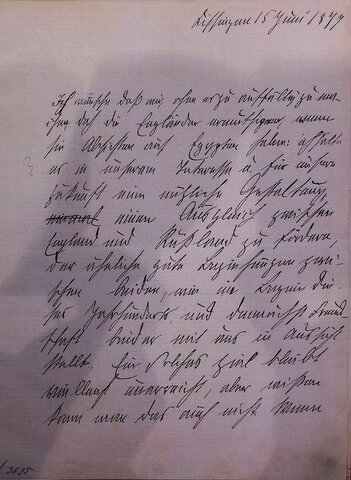 Kissingen 15 Juni 1877
Ich wünsche daß wir, ohne es zu auffällig zu ma-
chen doch die Engländer ermuthigen, wenn
sie Absichten auf Egypten haben: ich halte
es in unserem Interesse u. für unsere
Zukunft eine nützliche Gestaltung,
einen Ausgleich zwischen
England und Rußland zu fördern,
der ähnliche gute Beziehungen zwi-
schen beiden, wie im Beginn die-
ses Jahrhunderts, und demnächst Freund-
schaft beider mit uns in Aussicht
stellt. Ein solches Ziel bleibt
vielleicht unerreicht, aber wissen
kann man das auch nicht. Wenn
3835